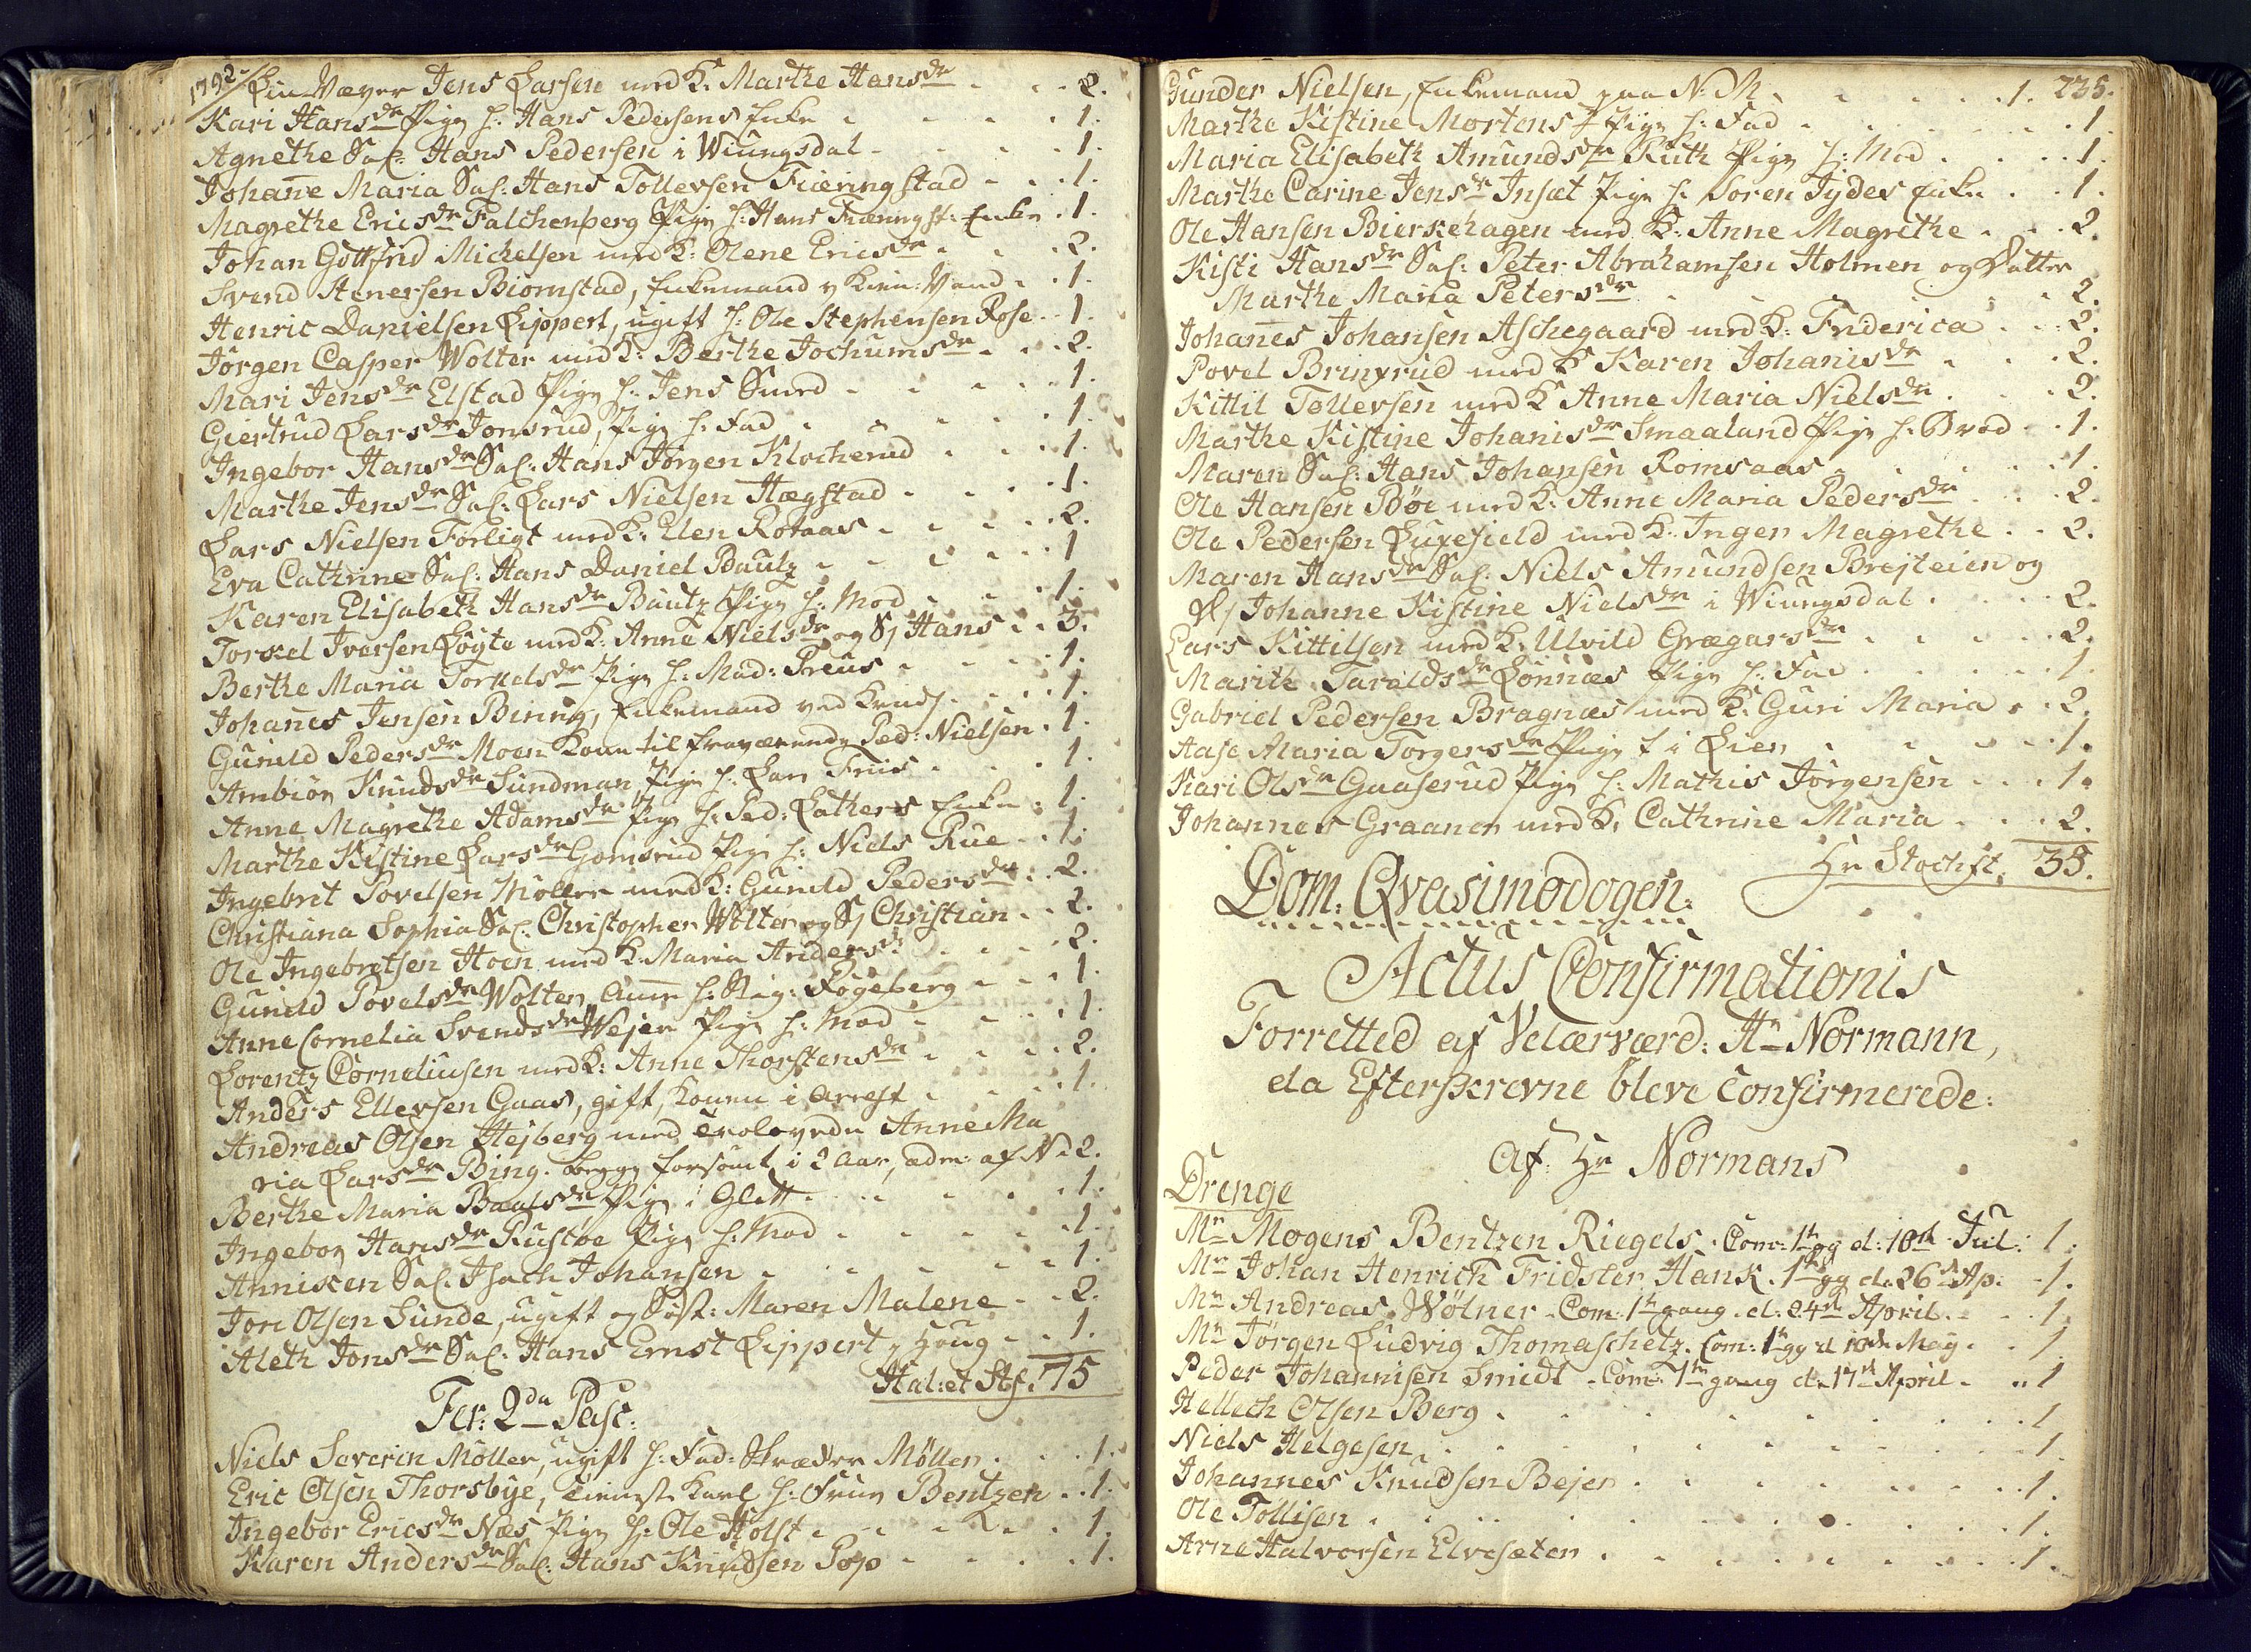 1792
Lin-Væver Jens Larsen med K: Marthe Hansdr . . . 2.
Kari Hansdr Pige h: Hans Pedersens Enke . . . 1.
Agnethe Sal: Hans Pedersen i Wiungsdal . . . 1.
Johan̄e Maria Sal: Hans Tollevsen Fiæringstad . . . 1.
Magrethe Ericsdr Falchenberg Pige h: Hans Fiæringst: Enke . 1.
Johan Gottfrid Michelsen med K: Olene Ericsdr . . . 2.
Svend Stenersen Biørnstad, Enkemand . . . 1.
Henric Danielsen Lippert, ugift h: Ole Stephensen Rose . . 1.
Jørgen Casper Wolter med K: Berthe Jochumsdr . . . 2.
Mari Jensdr Elstad Pige h: Jens Smed . . . 1.
Giertrud Larsdr Jonsrud, Pige h: Fad . . . 1.
Ingebor Hansdr Sal: Hans Jørgen Klocherud . . . 1.
Marthe Jensdr Sal: Lars Nielsen Hægstad . . . 1.
Lars Nielsen Førligt med K: Elen Rotaas . . . 2.
Eva Cathrine Sal: Hans Daniel Bautz . . . 1
Karen Elisabeth Hansdr Bautz Pige h: Mod . . . 1.
Torkel Iversen Løgte med K: Anne Nielsdr og S/ Hans . . 3.
Berthe Maria Torkelsdr Pige h: Mad: Preus . . . 1.
Johan̄es Jensen Bining, Enkemand ved . . . 1.
Gunild Pedersdr Moen Kone til fraværende Ped: Nielsen . 1.
Ambiør Knudsdr Sundman, Pige h: Lars Friis . . . 1.
Anne Magrethe Adamsdr Pige h: Ped: Lathers Enke . 1.
Marthe Kistine Larsdr Gomsrud Pige h: Niels Rue . . 1.
Ingebrit Povelsen Møller med K: Gunild Pedersdr . . 2.
Christiana Sophia Sal: Christopher Wolter og S/ Christian . . 2.
Ole Ingebretsen Hoen med K: Maria Andersdr . . . 2.
Gunild Povelsdr Wolter, Am̄e h: Rig: Fogeberg . . . 1.
Anne Cornelia Svendsdr Wejer Pige h: Mod . . . 1.
Lorentz Corneliusen med K: Anne Thorstensdr . . . 2.
Anders Ellevsen Gaas, gift, Konen i Arrest . . . 1.
Andreas Olsen Hejberg med trolovede Anne Ma
ria Larsdr Bing. begge forsømt i 2 Aar, adm: af N. 2.
Berthe Maria Baalsdr Pige i Glitt . . . 1.
Ingebor Hansdr Rustøe Pige h: Mod . . . 1.
Annisken Sal: Isach Johansen . . . 1.
Jon Olsen Sunde, ugift og Søst: Maren Malene . . 2.
Aleth Jonsdr Sal: Hans Ernst Lippert, Houg . . 1.
Hal: et Stf: 75
Fer: 2da Pasc:
Niels Severin Møller, ugift h: Fad: Skræder Møller . . . 1.
Eric Olsen Thorsbye, tienest Karl h: Frue Bentzen . . 1.
Ingebor Ericsdr Næs Pige h: Ole Holst . . . 1.
Karen Andersdr Sal: Hans Knudsen Pop . . . 1.
235.
Gunder Nielsen, Enkemand paa N: M. . . . 1.
Marthe Kistine Mortensdr Pige h: Fad . . . 1.
Maria Elisabeth Amundsdr Ruth Pige h: Mod . . . 1.
Marthe Carine Jensdr Insæt Pige h: Soren Jydes Enke . . 1.
Ole Hansen Bierkehagen med K: Anne Magrethe . . 2.
Kisti Hansdr Sal: Peter Abrahamsen Holmen og Datter
Marthe Maria Petersdr . . . 2.
Johan̄es Johansen Aschegaard med K: Friderica . . . 2.
Povel Bringrud med K Karen Johanisdr . . . 2.
Kittil Tollevsen med K Anne Maria Nielsdr . . . 2.
Marthe Kistine Johanisdr Smaaland Pige h: Brod . . 1.
Maren Sal: Hans Johansen Romsaas . . . 1.
Ole Hansen Bøe med K: Anne Maria Pedersdr . . . 2.
Ole Pedersen Luxefield med K: Inger Magrethe . . 2.
Maren Hansdr Sal: Niels Amundsen Brejteien og
D/ Johanne Kistine Nielsdr i Wiungsdal . . . 2.
Lars Kittilsen med K: Ulvild Grægarsdr . . . 2.
Marite Taraldsdr Lønnæs Pige h: Fad . . . 1.
Gabriel Pedersen Bragnæs med K: Guri Maria . . 2.
Aase Maria Torgersdr Pige i Lien . . . 1.
Kari Olsdr Gaaserud Pige h: Mathis Jørgensen . . . 1.
Johannes Graaner med K: Cathrine Maria . . . 2.
Hr Stochft: 35.
Dom: Qvasimodogen:
Actus Confirmationis
Forretted af Velærværd: Hr Normann,
da Efterskrevne bleve Confirmerede:
Af: Hr Normans
Drenge
Mr Mogens Bentzen Riegels. Com: 1te gg d: 10de Jul: 1.
Mr Johan Henrich Fridster Hank. 1te gg d. 26de Ap: . 1.
Mr Andreas Wølner. Com: 1te gang d: 24de April . . . 1.
Mr Jørgen Ludvig Thomaschetz. Com: 1te gg d 10de May . . 1
Peder Johannisen Smidt. Com: 1te gang d. 17de April . . . 1
Hellech Olsen Berg . . . 1
Niels Helgesen . . . 1.
Johannes Knudsen Bejer . . . 1.
Ole Tollisen . . . 1.
Arne Halvorsen Elvesæter . . . 1.